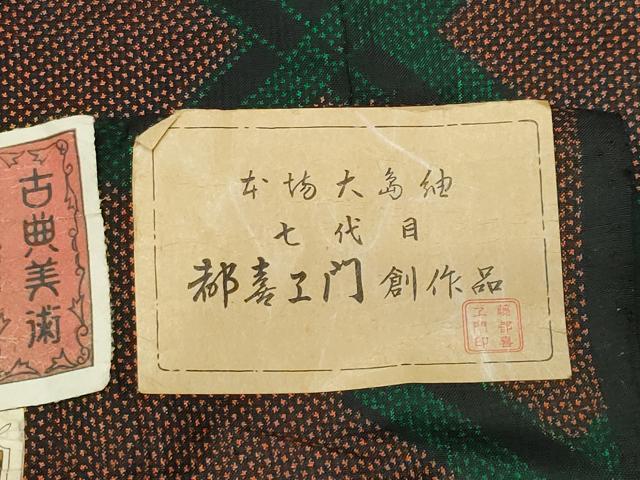 古典美術
本場大島紬
七代目
都喜ヱ門創作品
藤都喜
ヱ門印